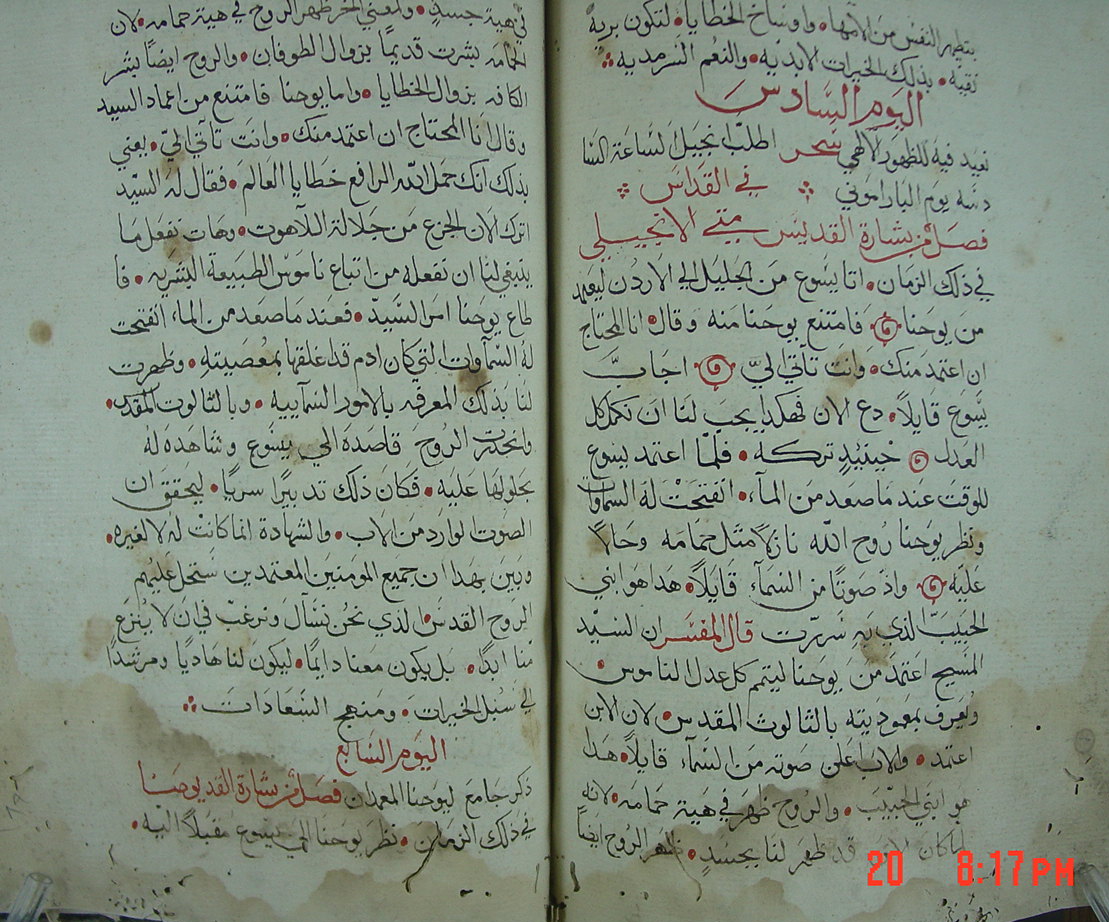 يتطهر النفس من الامها • واوساخ الخطايا • لتكون بريه
نقيه • بذلك الخيرات الابديه • والنعم السرمديه
اليوم السادس
نعيد فيه للظهور الالهي سحر اطلب انجيل لساعة السا
دسه يوم الباراموني في القداس
فصل من بشارة القديس متي الانجيلي
في ذلك الزمان • اتا يسوع من الجليل الي الاردن ليعتمد
من يوحنا • فامتنع يوحنا منه وقال • انا المحتاج
ان اعتمد منك • وانت تأتي اليّ • اجاب
يسوع قايلاً • دع الان فهكدا يجب لنا ان نكمل كل
العدل • حينيدٍ تركه • فلما اعتمد يسوع
للوقت عند ما صعد من المآء • انفتحت له السموات
ونظر يوحنا روح الله نازلاً مثل حمامه وحالاً
عليه • واذ صوتًا من السمآء قايلاً • هدا هو ابني
الحبيب الذي به سررت قال المفسر ان السيد
المسيح اعتمد من يوحنا ليتمم كل عدل الناموس •
وتعرف بمعموديته بالثالوث المقدس • لان الابن
اعتمد • والاب اعلن صوته من السمآء قايلاً • هدا
هو ابني الحبيب • والروح ظهر في هية حمامه • لانه
لما كان الابن قد ظهر لنا بجسدٍ • ظهر الروح ايضاً
في هية جسدٍ • ولمعني اخر ظهر الروح في هية حمامه • لان
الحمامه بشرت قديمًا بزوال الطوفان • والروح ايضًا بشر
الكافه بزوال الخطايا • واما يوحنا فامتنع من اعماد السيد
وقال انا المحتاج ان اعتمد منك • وانت تأتي اليّ • يعني
بدلك انك حمل الله الرافع خطايا العالم • فقال له السيّد
اترك الان الجزع من جلالة اللاهوت • وهات نفعل ما
ينبغي لنا ان نفعله من اتباع ناموس الطبيعة البشريه • فا
طاع يوحنا امر السيد • فعند ما صعد من الماء انفتحت
له السماوات التي كان ادم قد اغلقها بمعصيته • وظهرت
لنا بدلك المعرفه بالامور السمآييه • وبالثالوت المقدس •
وانحدرت الروح قاصدة الي يسوع وشاهده له
بحلولها عليه • فكان ذلك تدبيرًا سريًا • ليحقق ان
الصوت الوارد من الاب • والشهادة انما كانت له لا لغيره •
وبين بهدا ان جميع المومنين المعتمدين ستحل عليهم
الروح القدس الذي نحن نسأل ونرغب في ان لا ينزع
منا ابدًا • بل يكون معنا دايمًا • ليكون لنا هاديًا ومرشدًا
الي سبل الخيرات • ومنهج السعادات
اليوم السابع
ذكر جامع ليوحنا المعمدان فصل من بشارة القد يوحنا
في ذلك الزمان • نظر يوحنا الي يسوع مقبلاً اليه •
20 8:17 PM